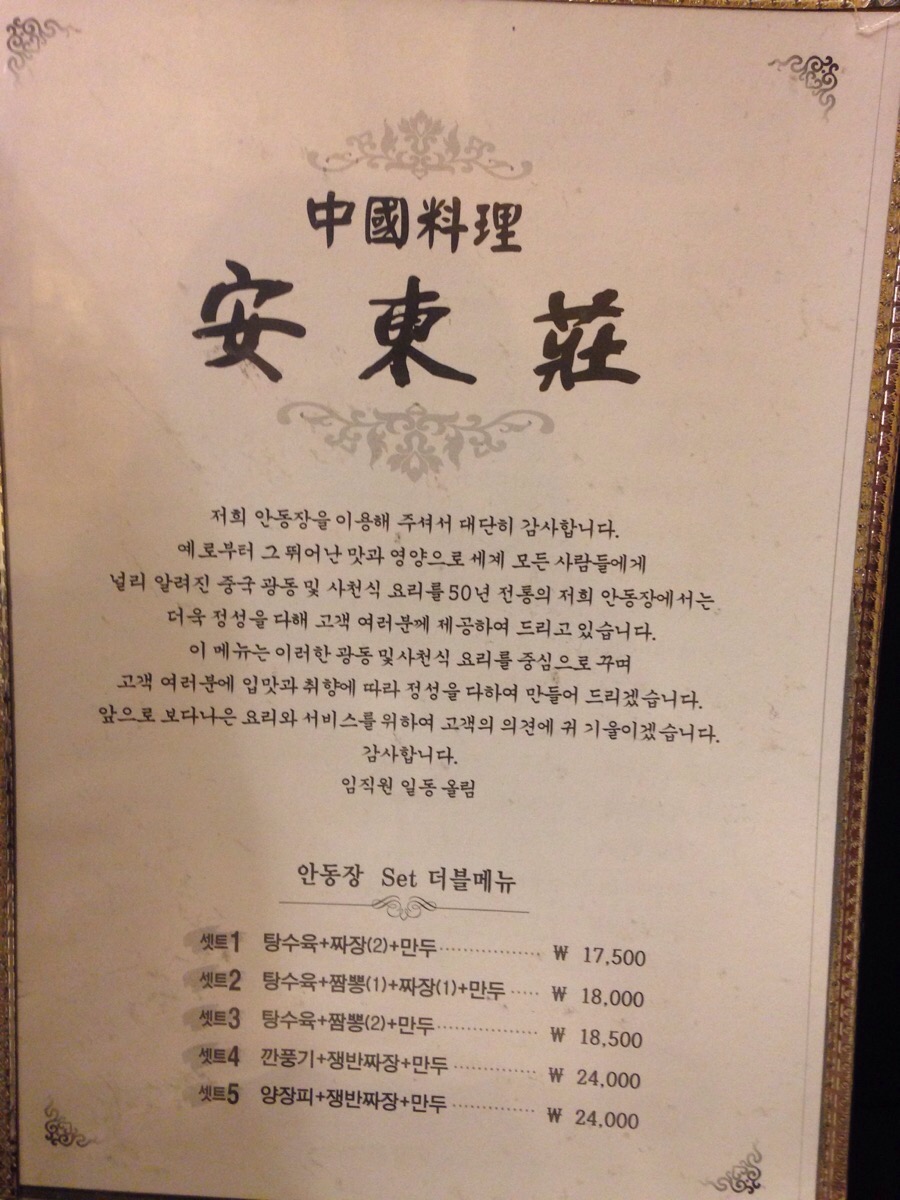 中國料理
安東莊
저희 안동장을 이용해 주셔서 대단히 감사합니다.
예로부터 그 뛰어난 맛과 영양으로 세계 모든 사람들에게
널리 알려진 중국 광동 및 사천식 요리를 50년 전통의 저희 안동장에서는
더욱 정성을 다해 고객 여러분께 제공하여 드리고 있습니다.
이 메뉴는 이러한 광동 및 사천식 요리를 중심으로 꾸며
고객 여러분에 입맛과 취향에 따라 정성을 다하여 만들어 드리겠습니다.
앞으로 보다나은 요리와 서비스를 위하여 고객의 의견에 귀 기울이겠습니다.
감사합니다.
임직원 일동 올림
안동장 Set 더블메뉴
셋트1 탕수육+짜장(2)+만두 ₩ 17,500
셋트2 탕수육+짬뽕(1)+짜장(1)+만두 ₩ 18,000
셋트3 탕수육+짬뽕(2)+만두 ₩ 18,500
셋트4 깐풍기+쟁반짜장+만두 ₩ 24,000
셋트5 양장피+쟁반짜장+만두 ₩ 24,000